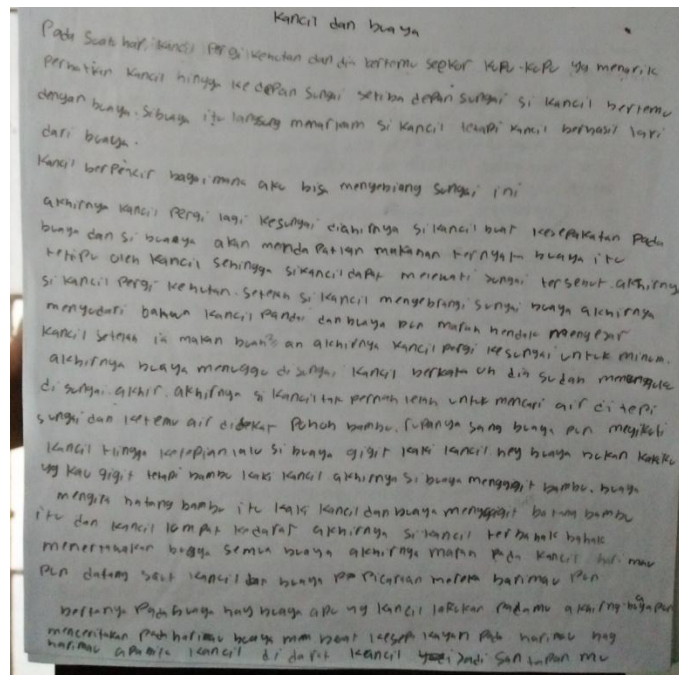 Kancil dan buaya
Pada suatu hari kancil pergi kehutan dan dia bertemu seekor kupu-kupu yg menarik
perhatian kancil hingga ke depan sungai setiba depan sungai si kancil bertemu
dengan buaya. Sibuaya itu langsung menarkam si kancil tetapi kancil berhasil lari
dari buaya.
Kancil berpikcir bagaimana aku bisa menyebrang sungai ini
akhirnya kancil pergi lagi kesungai diahirnya si kancil buat kesepakatan pada
buaya dan si buaya akan mendapatkan makanan ternyata buaya itu
tertipu oleh kancil sehingga sikancil dapat melewati sungai tersebut. akhirnya
si kancil pergi kehutan. Setelah si kancil mengebrangi sungai buaya akhirnya
menyadari bahwa kancil pandai dan buaya pun marah hendak mengejar
kancil setelah ia makan buah an akhirnya kancil pergi kesungai untuk minum.
akhirnya buaya menuggu disungai kancil berkata uh dia sudah
di sungai. akhir. akhirnya si kancil tak pernah lelah untuk mencari air di tepi
sungai dan ketemu air didekat pohon bambu. rupanya sang buaya pun megikuti
kancil hingga ketepian lalu si buaya gigit kaki kancil hey buaya bukan kakiku
yg kau gigit tetapi bambu kaki kancil akhirnya si buaya menggigit bambu. buaya
mengira batang bambu itu kaki kancil dan buaya menggigit batang bambu
itu dan kancil lompat kadarat akhirnya si kancil terbahak bahak
menertawakan buaya semua buaya akhirnya marah pada kancil harimau
pun datang saat kancil dan buaya harimau pun
bertanya pada buaya hay buaya apa yg kancil lakukan padamu akhirnya buaya pun
menceritakan pada harimau buaya buat pada harimau hay
harimau apabila kancil di darat kancil jadi santapan mu